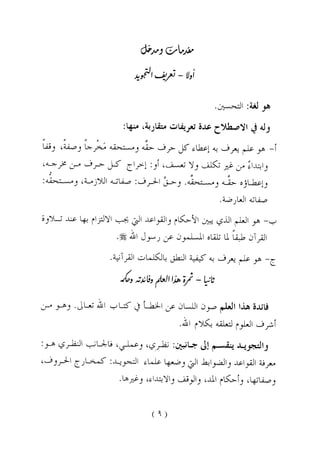 مقدمات ومدخل
أولاً – تعريف التجويد
هو لغة: التحسين.
وله في الاصطلاح عدة تعريفات متقاربة، منها:
أ- هو علم يعرف به إعطاء كل حرف حقَّه ومستحقه مَخْرجاً وصفةً، وقفاً
وابتداءً من غير تكلف ولا تعسف، أو: إخراج كل حرف من مخرجه،
وإعطاؤه حقَّه ومستحقَّه. وحقُّ الحرف: صفاته اللازمة، ومستحقُّه:
صفاته العارضة.
ب- هو العلم الذي يبين الأحكام والقواعد التي يجب الالتزام بها عند تلاوة
القرآن طبقاً لما تلقاه المسلمون عن رسول الله ﷺ.
ج- هو علم يعرف به كيفية النطق بالكلمات القرآنية.
ثانيا – ثمرة هذا العلم وفائدته وحكمه
فائدة هذا العلم صون اللسان عن الخطأ في كتاب الله تعالى. وهو من
أشرف العلوم لتعلقه بكلام الله.
والتجويد ينقسم إلى جانبين: نظري، وعملي، فالجانب النظري هو:
معرفة القواعد والضوابط التي وضعها علماء التجويد: كمخارج الحروف،
وصفاتها، وأحكام المد، والوقف والابتداء، وغيرها.
( ٩ )